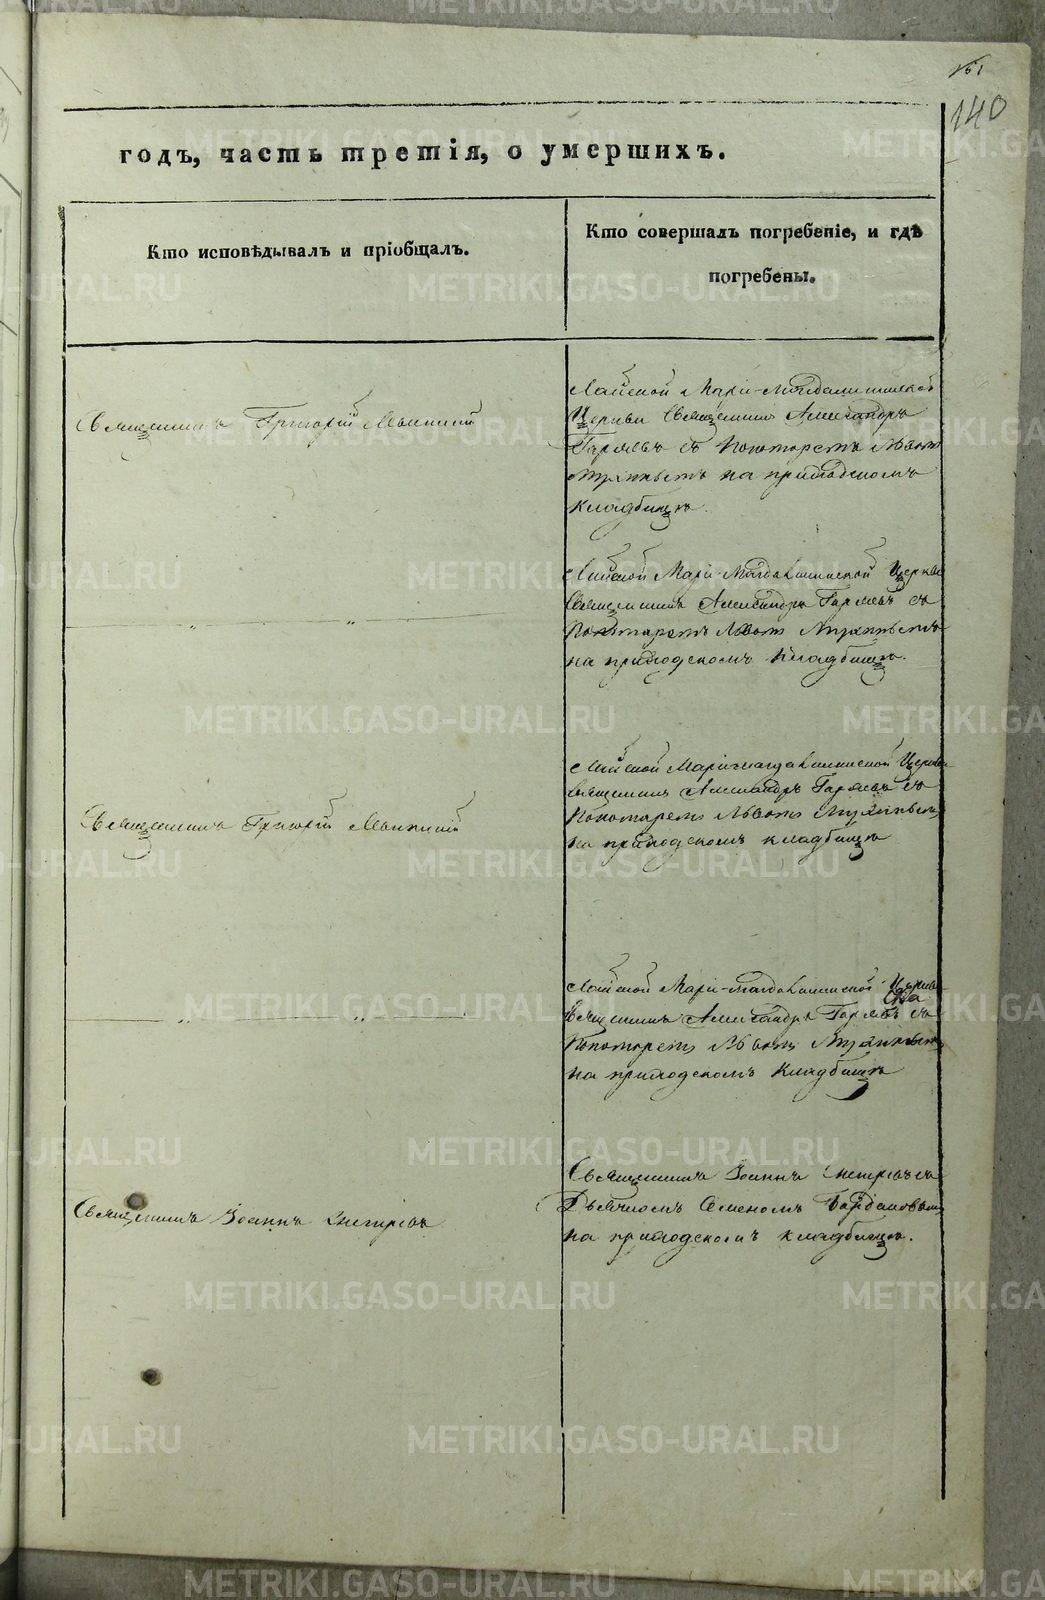 161
140
годъ, часть третія, о умершихъ.
Кто исповѣдывалъ и пріобщалъ.
Кто совершалъ погребеніе, и гдѣ
погребены.
Священникъ Григорій
Лайской Маріи-Магдалининской
Церкви Священникъ Александръ
Гаряевъ съ Пономаремъ Львомъ
на приходскомъ
кладбищѣ.
Лайской Маріи-Магдалининской Церкви
Священникъ Александръ Гаряевъ съ
Пономаремъ Львомъ
на приходскомъ кладбищѣ.
" "
Священникъ Григорій
Лайской Маріи-магдалининской Церкви
священникъ Александръ Гаряевъ съ
Пономаремъ Львомъ
на приходскомъ кладбищѣ
" "
Лайской Маріи-магдалининской Церкви
священникъ Александръ Гаряевъ съ
Пономаремъ Львомъ
на приходскомъ Кладбищѣ
Священникъ Іоаннъ
Священникъ Іоаннъ съ
Дьячкомъ Семеномъ
на приходскомъ кладбищѣ.
METRIKI.GASO-URAL.RU